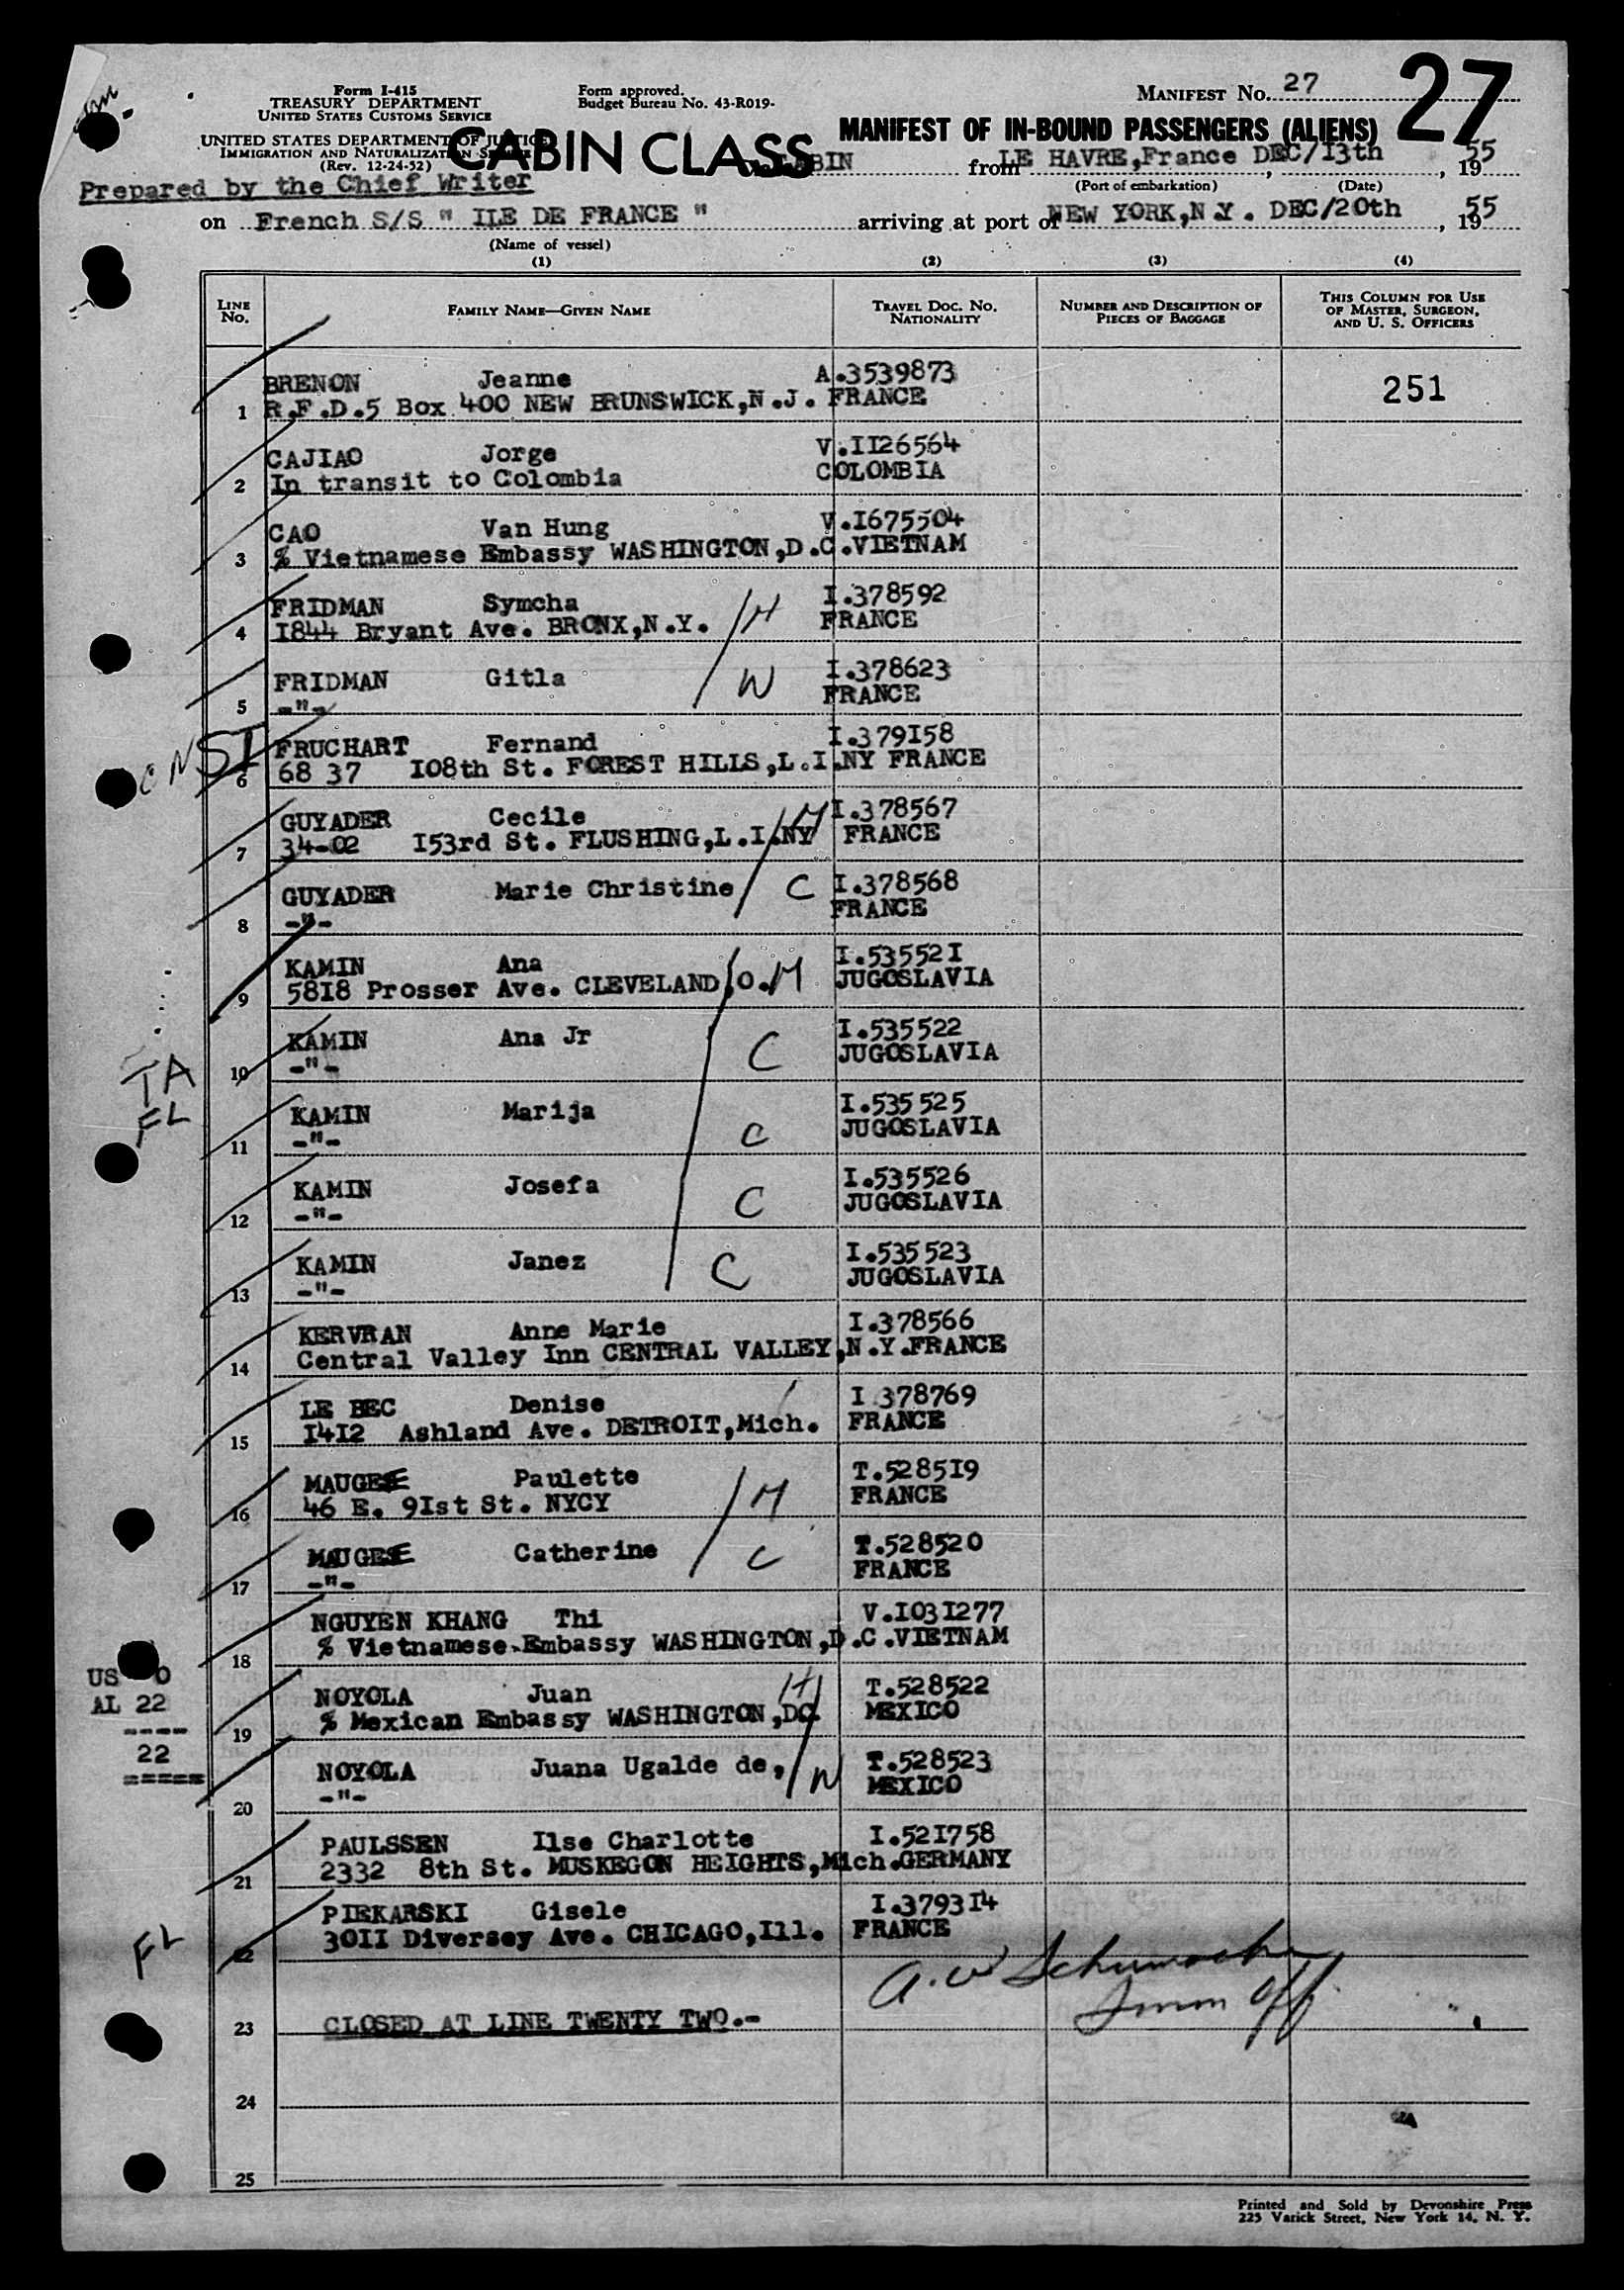 27
Form I-415
TREASURY DEPARTMENT
UNITED STATES CUSTOMS SERVICE
Form approved.
Budget Bureau No. 43-R019-
MANIFEST No. 27
UNITED STATES DEPARTMENT OF JUSTICE
IMMIGRATION AND NATURALIZATION SERVICE
(Rev. 12-24-52)
CABIN CLASS
MANIFEST OF IN-BOUND PASSENGERS (ALIENS)
CABIN from LE HAVRE,France DEC/I3th, 1955
(Port of embarkation) (Date)
Prepared by the Chief Writer
on French S/S " ILE DE FRANCE " arriving at port of NEW YORK,N.Y. DEC/20th, 1955
(Name of vessel)
(1) (2) (3) (4)
LINE No. FAMILY NAME—GIVEN NAME TRAVEL DOC. No. NATIONALITY NUMBER AND DESCRIPTION OF PIECES OF BAGGAGE THIS COLUMN FOR USE OF MASTER, SURGEON, AND U. S. OFFICERS
BRENON Jeanne A.3539873
1 R.F.D.5 Box 400 NEW BRUNSWICK,N.J. FRANCE 251
CAJIAO Jorge V.II26564
2 In transit to Colombia COLOMBIA
CAO Van Hung V.I675504
3 % Vietnamese Embassy WASHINGTON,D.C.VIETNAM
FRIDMAN Symcha I.378592
4 I844 Bryant Ave. BRONX,N.Y. H FRANCE
FRIDMAN Gitla I.378623
5 -"- W FRANCE
CNSI
FRUCHART Fernand I.379I58
6 68 37 I08th St. FOREST HILLS,L.I.NY FRANCE
GUYADER Cecile M I.378567
7 34-02 I53rd St. FLUSHING,L.I.NY FRANCE
GUYADER Marie Christine C I.378568
8 -"- FRANCE
KAMIN Ana I.53552I
9 58I8 Prosser Ave. CLEVELAND,O. M JUGOSLAVIA
KAMIN Ana Jr I.535522
10 -"- C JUGOSLAVIA
TA
FL
KAMIN Marija I.535525
11 -"- C JUGOSLAVIA
KAMIN Josefa I.535526
12 -"- C JUGOSLAVIA
KAMIN Janez I.535523
13 -"- C JUGOSLAVIA
KERVRAN Anne Marie I.378566
14 Central Valley Inn CENTRAL VALLEY,N.Y.FRANCE
LE BEC Denise I 378769
15 I4I2 Ashland Ave. DETROIT,Mich. FRANCE
MAUGEE Paulette T.5285I9
16 46 E. 9Ist St. NYCY M FRANCE
MAUGEE Catherine T.528520
17 -"- C FRANCE
NGUYEN KHANG Thi V.I03I277
18 % Vietnamese Embassy WASHINGTON,D.C.VIETNAM
US 0
AL 22
----
22
=====
NOYOLA Juan H T.528522
19 % Mexican Embassy WASHINGTON,DC. MEXICO
NOYOLA Juana Ugalde de, W T.528523
20 -"- MEXICO
PAULSSEN Ilse Charlotte I.52I758
21 2332 8th St. MUSKEGON HEIGHTS,Mich.GERMANY
PIEKARSKI Gisele I.3793I4
22 30II Diversey Ave. CHICAGO,Ill. FRANCE
FL
A. W Schumacher
Imm Off
23 CLOSED AT LINE TWENTY TWO.-
24
25
Printed and Sold by Devonshire Press
225 Varick Street, New York 14, N. Y.